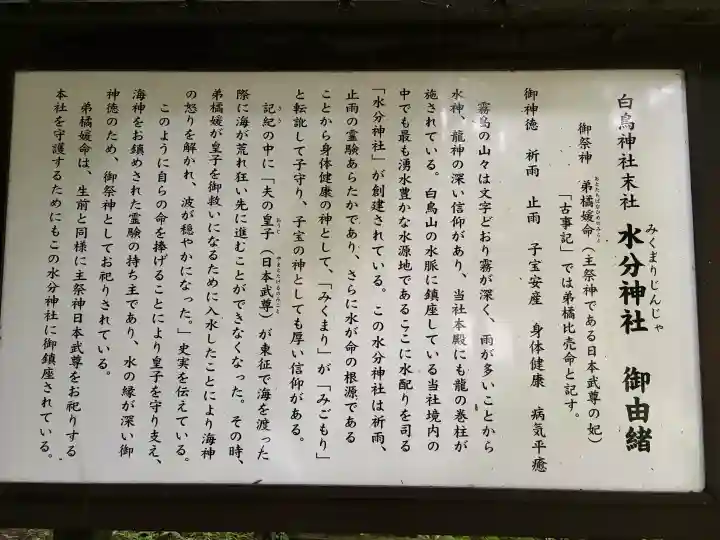 白鳥神社末社 水分神社 御由緒
みくまりじんじゃ
御祭神 弟橘媛命(主祭神である日本武尊の妃)
おとたちばなひめのみこと
「古事記」では弟橘比売命と記す。
御神徳 祈雨 止雨 子宝安産 身体健康 病気平癒
霧島の山々は文字どおり霧が深く、雨が多いことから
水神、龍神の深い信仰があり、当社本殿にも龍の巻柱が
施されている。白鳥山の水脈に鎮座している当社境内の
中でも最も湧水豊かな水源地であるここに水配りを司る
「水分神社」が創建されている。この水分神社は祈雨、
止雨の霊験あらたかであり、さらに水が命の根源である
ことから身体健康の神として、「みくまり」が「みごもり」
と転訛して子守り、子宝の神としても厚い信仰がある。
記紀の中に「夫の皇子(日本武尊)が東征で海を渡った
きき おっと やまとたけるのみこと
際に海が荒れ狂い先に進むことができなくなった。その時、
弟橘媛が皇子を御救いになるために入水したことにより海神
の怒りを解かれ、波が穏やかになった。」史実を伝えている。
このように自らの命を捧げることにより皇子を守り支え、
海神をお鎮めされた霊験の持ち主であり、水の縁が深い御
神徳のため、御祭神としてお祀りされている。
弟橘媛命は、生前と同様に主祭神日本武尊をお祀りする
本社を守護するためにもこの水分神社に御鎮座されている。